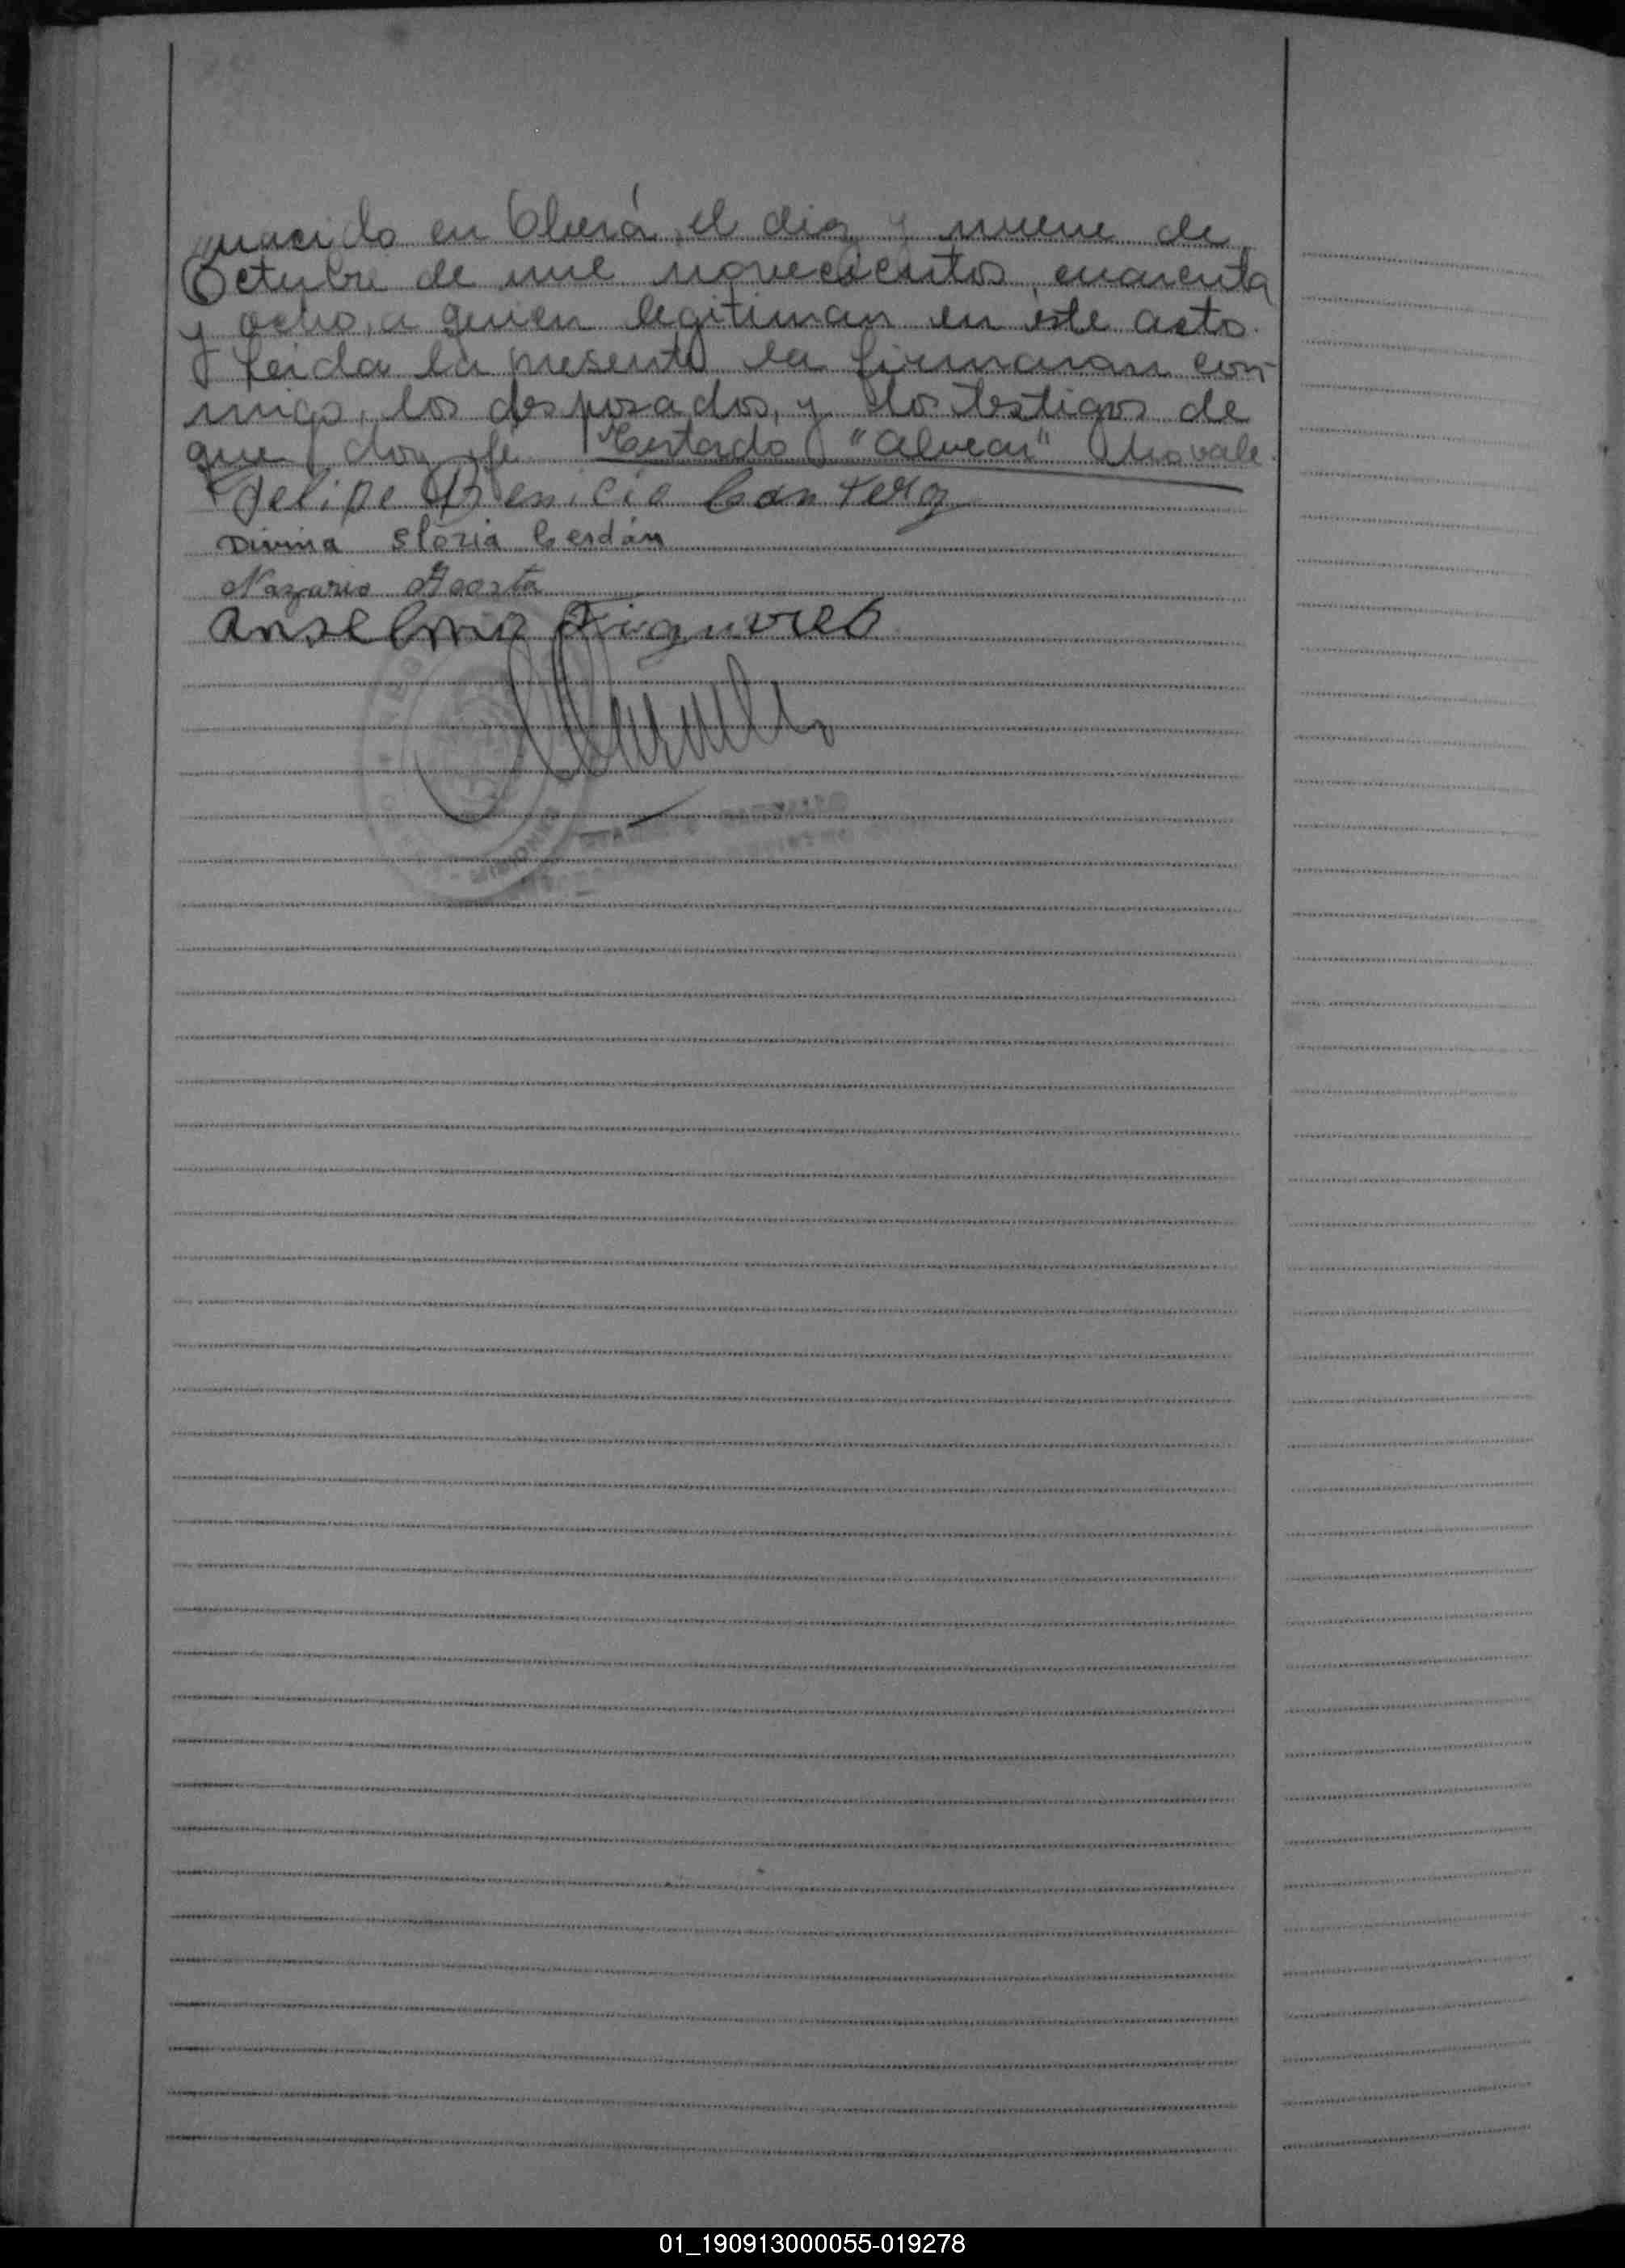 nacido en Oberá, el diez y nueve de
Octubre de mil novecientos cuarenta
y ocho, a quien legitiman en este acto.
Leida la presente la firmaron con-
migo, los desposados, y los testigos de
que doy fe. Testado "alvear" No vale.
Felipe Fenicio Cantero
Divina Gloria Cerdán
Nazario Acosta
Anselmio Figueredo
MISIONES
01_190913000055-019278